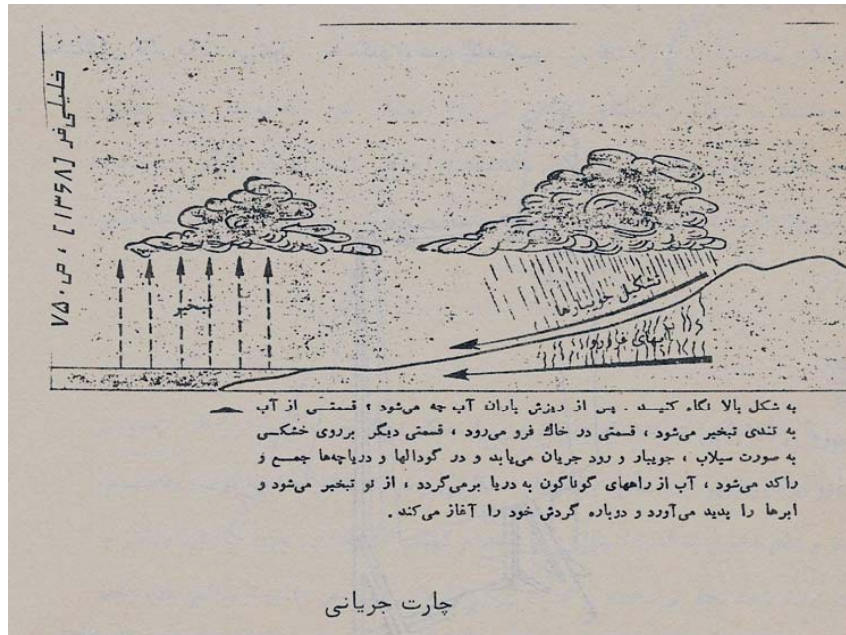 خلیلی‌فر [۱۳۶۸] ، ص ۷۵۰
تبخیر
تشکیل جویبارها
آبهای فرورو
به شکل بالا نگاه کنیـد . پس از ریزش باران آب چه می‌شود ؟ قسمتـی از آب
به تندی تبخیر می‌شود ، قسمتی در خاک فرو می‌رود ، قسمتی دیگر برروی خشکـی
به صورت سیلاب ، جویبار و رود جریان می‌یابد و در گودالها و دریاچه‌ها جمـع و
راکد می‌شود ، آب از راههای گوناگون به دریا برمی‌گردد ، از نو تبخیر می‌شود و
ابرها را پدید می‌آورد و دوباره گردش خود را آغاز می‌کند .
چارت جریانی